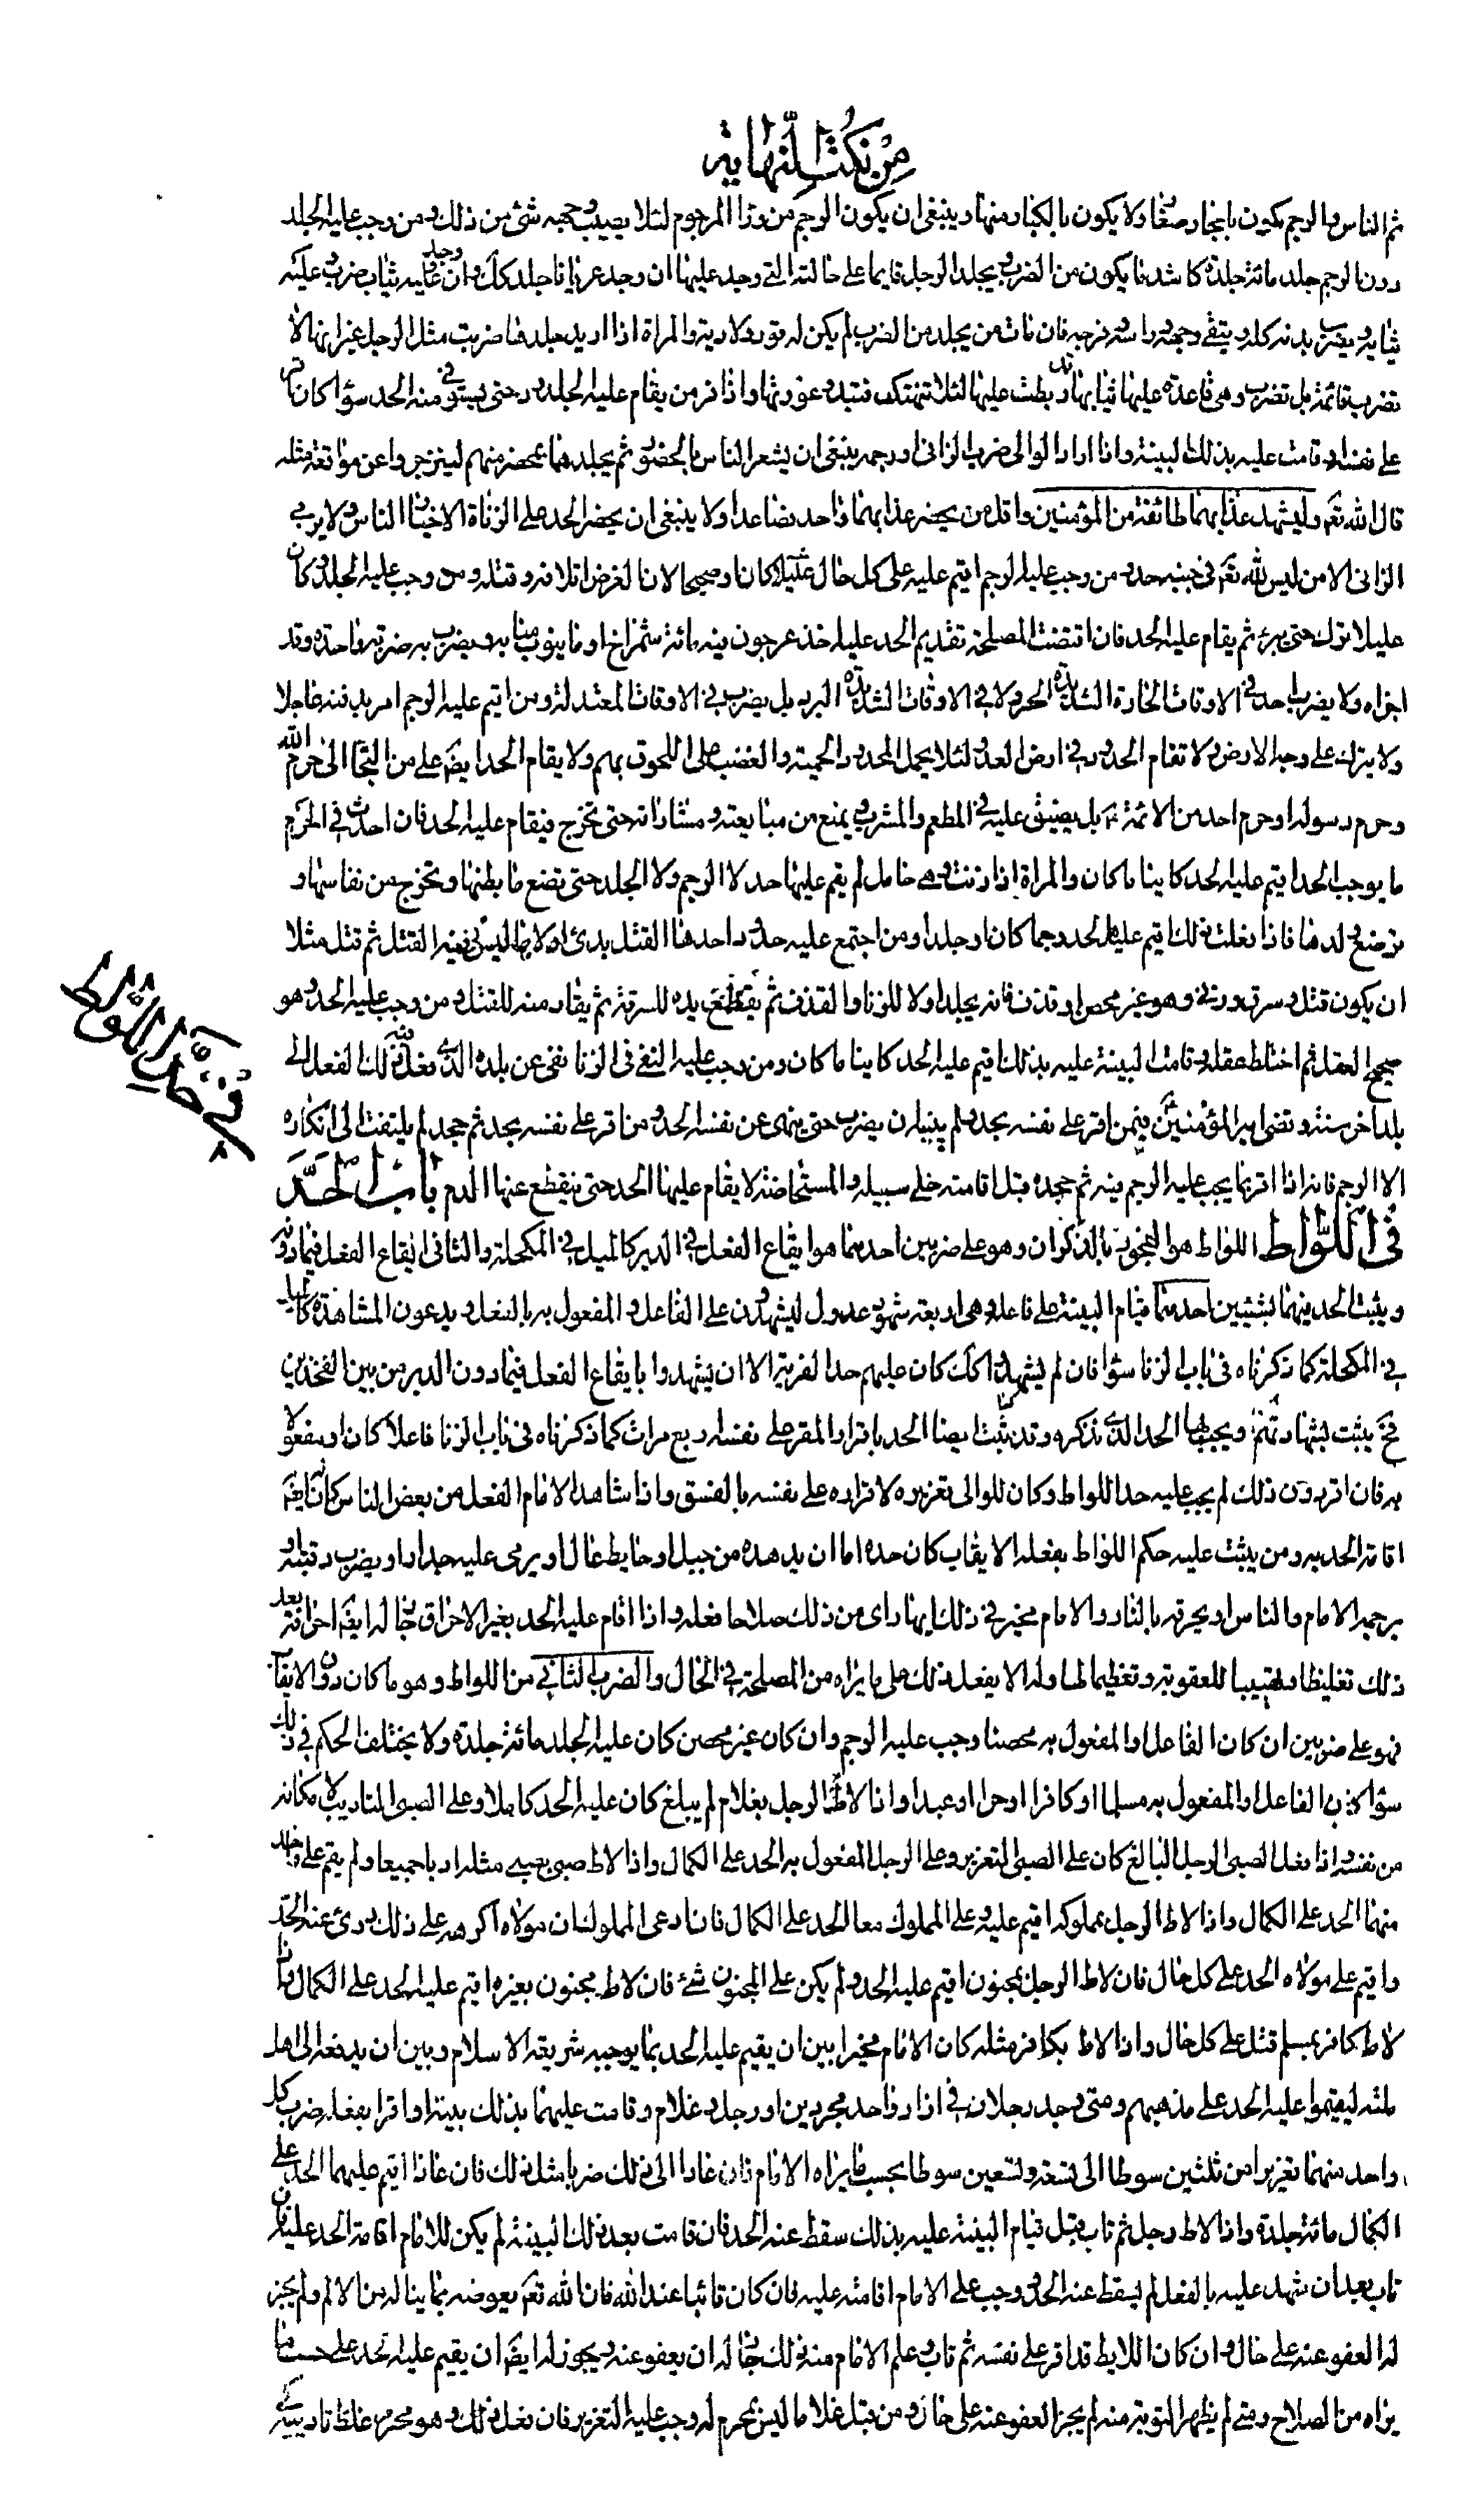 من نكت النهاية
ثم الناس والرجم يكون باحجار صغار ولا يكون بالكبار منها وينبغى ان يكون الرجم من وراء المرجوم لئلا يصيب وجهه شئ من ذلك ومن وجب عليه الجلد
دون الرجم جلد مائة جلدة كاشد ما يكون من الضرب ويجلد الرجل قايما على حالته التى وجد عليها ان وجد عريانا جلد كك وان وجد عليه ثياب ضرب وعليه
ثيابه ويضرب بدنه كله ويتقى وجهه وراسه وفرجه فان مات من يجلد من الضرب لم يكن له قود ولا دية والمراة اذا اريد جلدها ضربت مثل الرجل غير انها لا
تضرب قائمة بل تضرب وهى قاعدة عليها ثيابها قد ربطت عليها لئلا تنهتك فتبدو عورتها واذا فر من يقام عليه الجلد رد حتى يستوفى منه الحد سواء كان اقر
على نفسه او قامت عليه بذلك البينة واذا اراد الوالى ضرب الزانى او رجمه ينبغى ان يشعر الناس بالحضور ثم يجلدهما بمحضر منهم لينزجروا عن مواقعة مثله
قال الله تعم وليشهد عذابهما طائفة من المؤمنين واقل من يحضر عذابهما واحد فصاعدا ولا ينبغى ان يحضر الحد على الزناة الا خيار الناس ولا يرمى
الزانى الا من ليس لله تعم فى جنبه حد ومن وجب عليه الرجم اقيم عليه على كل حال عليلا كان او صحيحا لان الغرض اتلافه وقتله ومن وجب عليه الجلد وكان
عليلا ترك حتى يبرئ ثم يقام عليه الحد فان اقتضت المصلحة تقديم الحد عليه اخذ عرجون فيه مائة شمراخ او ما ينوب منابه ويضرب به ضربة واحدة وقد
اجزاه ولا يضرب احد فى الاوقات الحارة الشديدة الحر ولا فى الاوقات الشديدة البرد بل يضرب فى الاوقات المعتدلة ومن اقيم عليه الرجم امر بدفنه عاجلا
ولا يترك على وجه الارض ولا تقام الحدود فى ارض العدو لئلا يحمل المحدود الحمية والغضب على اللحوق بهم ولا يقام الحد ايضم على من التجأ الى حرم الله
وحرم رسوله او حرم احد من الائمة ع بل يضيق عليه فى المطعم والمشرب ويمنع من مبايعته ومشاراته حتى يخرج فيقام عليه الحد فان احدث فى الحرم
ما يوجب الحد اقيم عليه الحد كاينا ما كان والمراة اذا زنت وهى حامل لم يقم عليها حد لا الرجم ولا الجلد حتى تضع ما بطنها وتخرج من نفاسها و
ترضع ولدها فاذا فعلت ذلك اقيم عليها الحد رجما كان او جلدا ومن اجتمع عليه حدود احدها القتل بدئ اولا بما ليس فيه القتل ثم قتل مثلا
ان يكون قتل وسرق وزنى وهو غير محصن او قذف فانه يجلد اولا للزنا والقذف ثم يقطع يده للسرقة ثم يقاد منه للقتل ومن وجب عليه الحد وهو
صحيح العقل ثم اختلط عقله وقامت البينة عليه بذلك اقيم عليه الحد كاينا ما كان ومن وجب عليه النفى فى الزنا نفى عن بلده الذى فعل فيه ذلك الفعل الى
بلد اخر سنة وقضى امير المؤمنين ع فيمن اقر على نفسه بحد ولم يبينه ان يضرب حتى ينهى عن نفسه الحد ومن اقر على نفسه بحد ثم جحد لم يلتفت الى انكاره
الا الرجم فانه اذا اقر بما يجب عليه الرجم فيه ثم جحده قبل اقامته خلى سبيله والمستحاضة لا يقام عليها الحد حتى ينقطع عنها الدم باب الحد
فى اللواط اللواط هو الفجور بالذكران وهو على ضربين احدهما هو ايقاع الفعل فى الدبر كالميل فى المكحلة والثانى ايقاع الفعل فيما دونه
ويثبت الحد فيهما بشيئين احدهما قيام البينة على فاعله وهى اربعة شهود عدول يشهدون على الفاعل والمفعول به بالفعل ويدعون المشاهدة كالميل
فى المكحلة كما ذكرناه فى باب الزنا سواء فان لم يشهدوا كك كان عليهم حد الفرية الا ان يشهدوا بايقاع الفعل فيما دون الدبر من بين الفخذين
فح يثبت بشهادتهم ويجب بها الحد الذى نذكره وقد يثبت ايضا الحد باقرار المقر على نفسه اربع مرات كما ذكرناه فى باب الزنا فاعلا كان او مفعولا
به فان اقر دون ذلك لم يجب عليه حد اللواط وكان للوالى تعزيره لاقراره على نفسه بالفسق واذا شاهد الامام الفعل من بعض الناس كان له ايضم
اقامة الحد به ومن يثبت عليه حكم اللواط بفعله الايقاب كان حده اما ان يدهده من جبل او حايط عال او يرمى عليه جدار او يضرب رقبته او
يرجمه الامام والناس او يحرقه بالنار والامام مخير فى ذلك ايها راى من ذلك صلاحا فعله واذا اقام عليه الحد بغير الاحراق جاز له ايضم احراقه بعد
ذلك تغليظا وتهييبا للعقوبة وتعظيما لها وله الا يفعل ذلك على ما يراه من المصلحة فى الحال والضرب الثانى من اللواط وهو ما كان دون الايقاب
فهو على ضربين ان كان الفاعل او المفعول به محصنا وجب عليه الرجم وان كان غير محصن كان عليه الجلد مائة جلدة ولا يختلف الحكم فى ذلك
سواء كان الفاعل او المفعول به مسلما او كافرا او حرا او عبدا واذا لاط الرجل بغلام لم يبلغ كان عليه الحد كاملا وعلى الصبى التاديب لامكانه
من نفسه واذا فعل الصبى الرجل البالغ كان على الصبى التعزير وعلى الرجل المفعول به الحد على الكمال واذا لاط صبى بصبى مثله ادبا جميعا ولم يقم على واحد
منهما الحد على الكمال واذا لاط الرجل بمملوكه اقيم عليه وعلى المملوك معا الحد على الكمال فان ادعى المملوك ان مولاه اكرهه على ذلك درئ عنه الحد
واقيم على مولاه الحد على كل حال فان لاط الرجل بمجنون اقيم عليه الحد ولم يكن على المجنون شئ فان لاط مجنون بغيره اقيم عليه الحد على الكمال واذا
لاط كافر بمسلم قتل على كل حال واذا لاط بكافر مثله كان الامام مخيرا بين ان يقيم عليه الحد بما يوجبه شريعة الاسلام وبين ان يدفعه الى اهل
ملته ليقيموا عليه الحد على مذهبهم ومتى وجد رجلان فى ازار واحد مجردين او رجل وغلام وقامت عليهما بذلك بينة او اقرا بفعله ضرب كل
واحد منهما تعزيرا من ثلثين سوطا الى تسعة وتسعين سوطا بحسب ما يراه الامام فان عادا الى ذلك ضربا مثل ذلك فان عادا اقيم عليهما الحد على
الكمال مائة جلدة واذا لاط رجل ثم تاب قبل قيام البينة عليه بذلك سقط عنه الحد فان قامت بعد ذلك البينة لم يكن للامام اقامة الحد عليه فان
تاب بعد ان شهد عليه بالفعل لم يسقط عنه الحد ووجب على الامام اقامته عليه فان كان تائبا عند الله فان الله تعم يعوضه بما يناله من الالم ولم يجز
له العفو عنه على حال وان كان اللايط قد اقر على نفسه ثم تاب وعلم الامام منه ذلك جاز له ان يعفو عنه ويجوز له ايضم ان يقيم عليه الحد على حسب ما
يراه من الصلاح ومتى لم يظهر التوبة منه لم يجز العفو عنه على حال ومن قبل غلاما ليس بمحرم له وجب عليه التعزير فان فعل ذلك وهو محرم غلظ تاديبه كى
فى حد اللواط